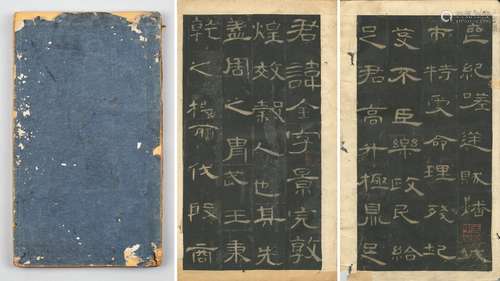 君諱全字景完敦
煌效穀人也其先
蓋周之胄武王秉
乾之機翦伐殷商
喪紀嗟逆賊燔城
市特受命理殘圮
芟不臣樂政民給
足君高升極鼎足